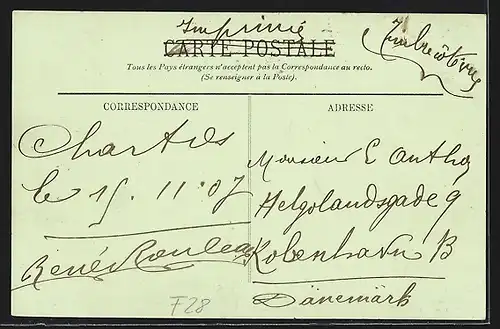 Imprimé
CARTE POSTALE
Timbre côté vue
Tous les Pays étrangers n'acceptent pas la Correspondance au recto.
(Se renseigner à la Poste).
CORRESPONDANCE
ADRESSE
Chartres
le 15. 11. 07
René Rouleau
Monsieur E Anthon
Helgolandsgade 9
Kobenhavn B
Dänemark
F28